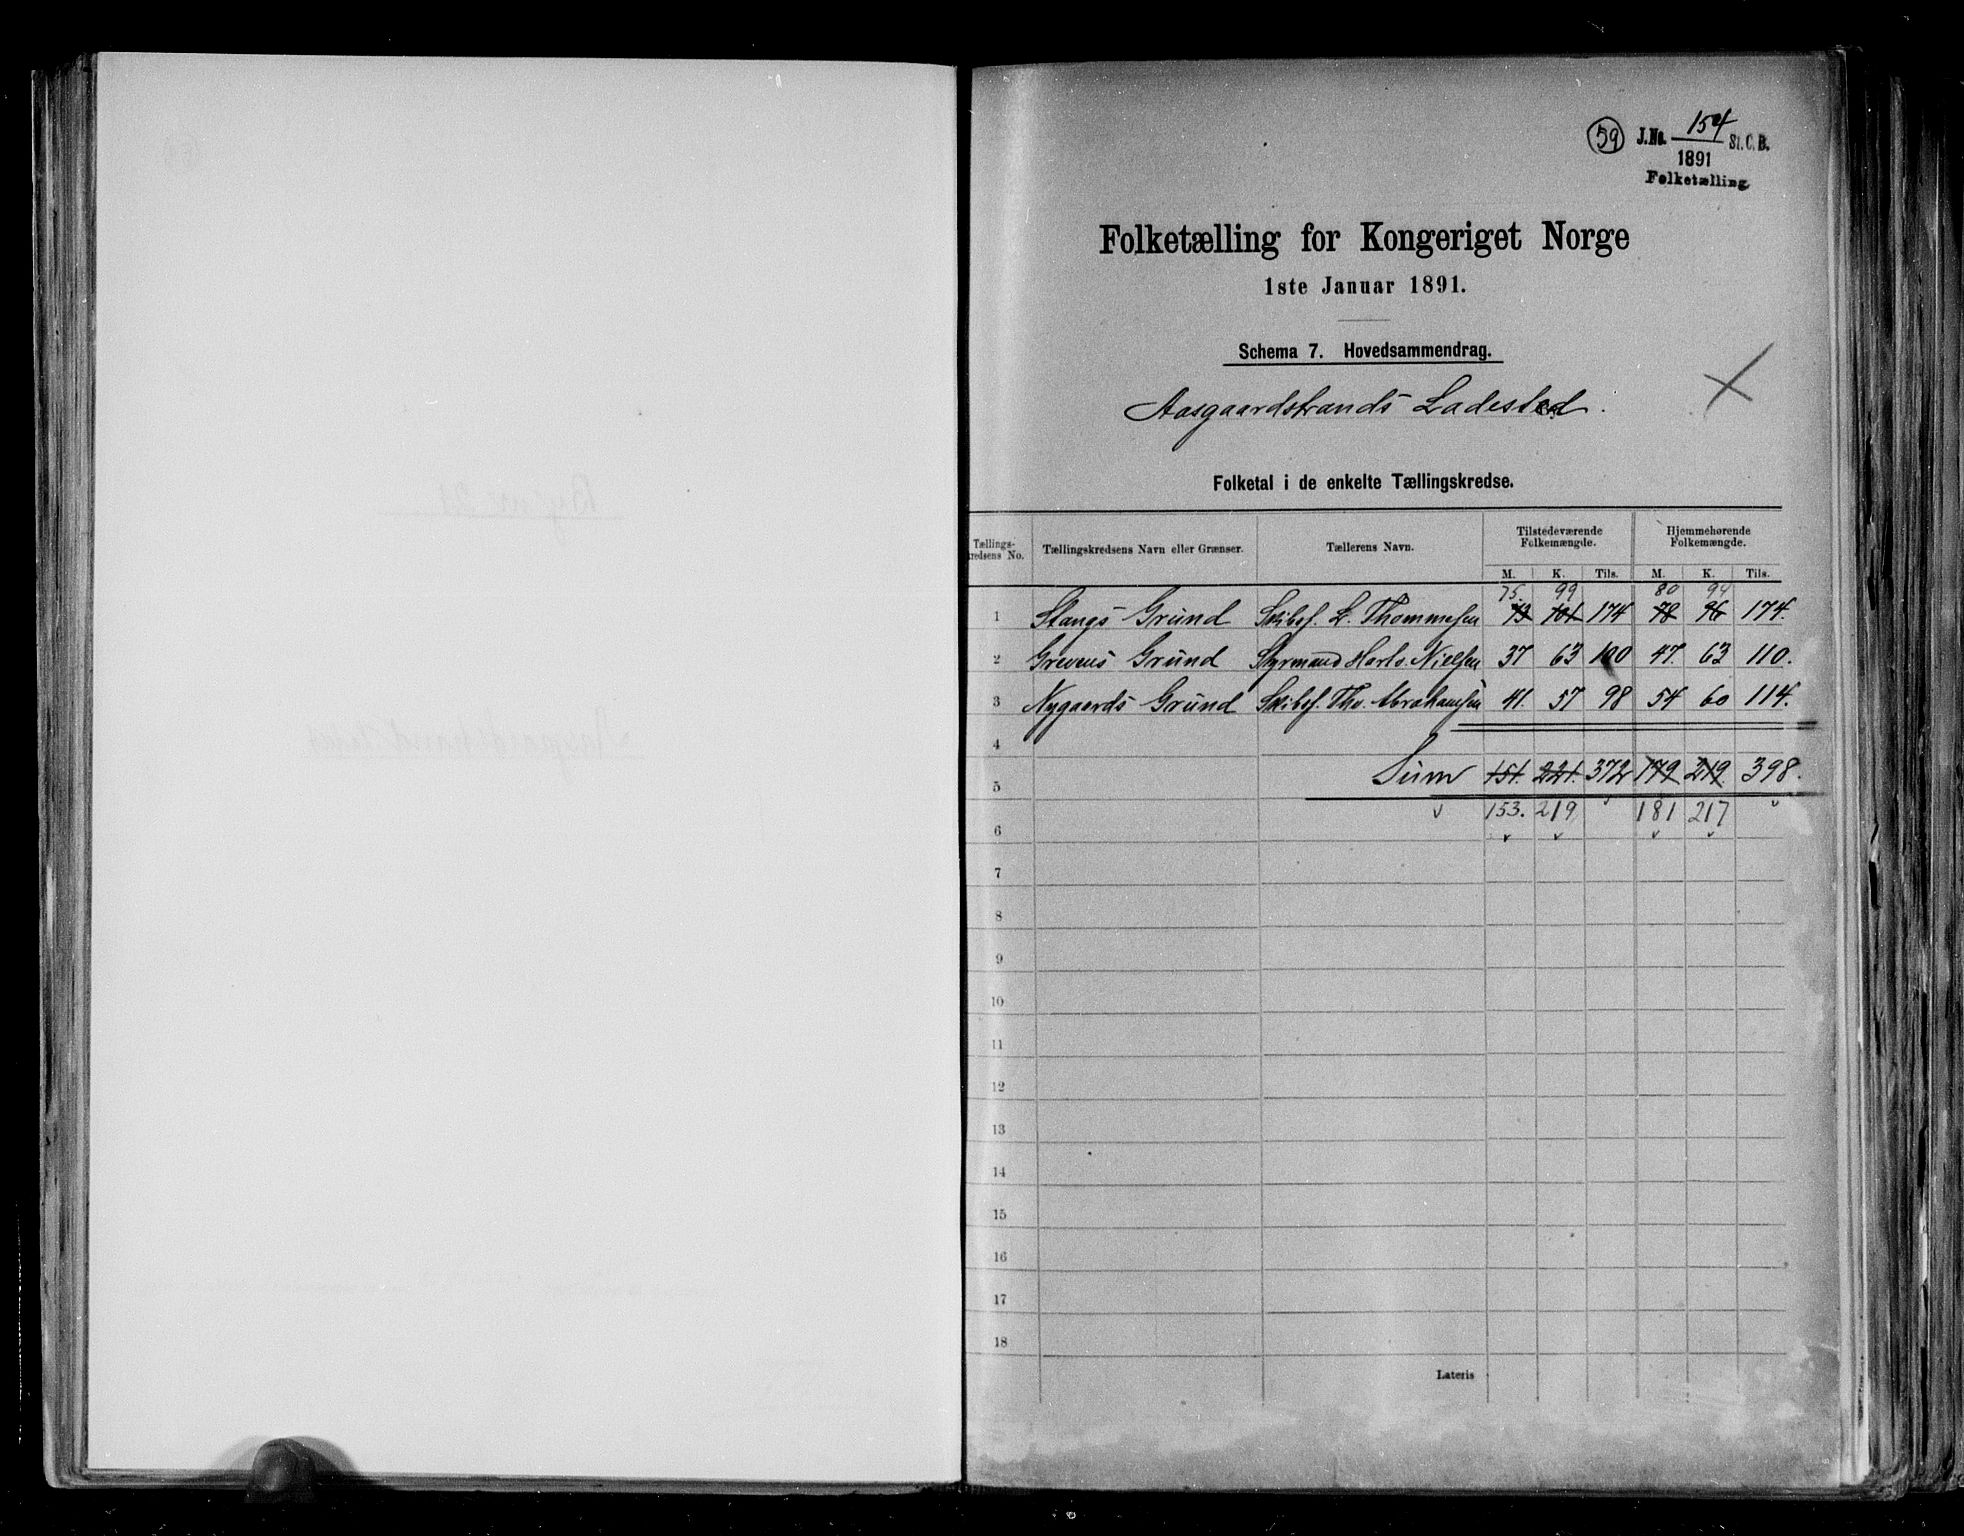 59 J.No. 154 St. C. B.
1891
Folketælling
Folketælling for Kongeriget Norge
1ste Januar 1891.
Schema 7. Hovedsammendrag.
Aasgaardstrands Ladested.
Folketal i de enkelte Tællingskredse.
Tællings- kredsens No. Tællingskredsens Navn eller Grænser. Tællerens Navn. Tilstedeværende Folkemængde. Hjemmehørende Folkemængde.
M. K. Tils. M. K. Tils.
75. 99 80 94
1 Stangs Grund Skibsf. L. Thommesen 73 101 174 78 96 174.
2 Grevens Grund Styrmand Nielsen 37 63 100 47. 63 110.
3 Nygaards Grund Skibsf. Thv. Abrahamsen 41. 57 98 54 60 114.
4
5 Sum 151. 221. 372 179 219. 398.
153. 219 181 217
6
7
8
9
10
11
12
13
14
15
16
17
18
Lateris